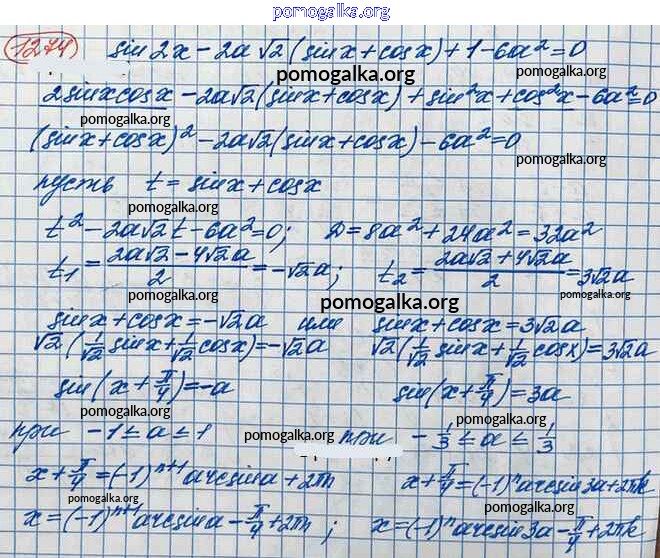 pomogalka.org
1274) sin2x - 2a√2(sinx+cosx)+1-6a²=0
pomogalka.org
2sinxcosx - 2a√2(sinx+cosx)+sin²x+cos²x-6a²=0
pomogalka.org
(sinx+cosx)² - 2a√2(sinx+cosx) - 6a²=0
pomogalka.org
пусть t = sinx+cosx
pomogalka.org
t² - 2a√2t - 6a²=0; D = 8a²+24a²=32a²
pomogalka.org
t₁ = (2a√2-4√2a)/2 = -√2a; t₂ = (2a√2+4√2a)/2 = 3√2a
pomogalka.org pomogalka.org
pomogalka.org
sinx+cosx=-√2a или sinx+cosx=3√2a
√2(1/√2 sinx+1/√2 cosx)=-√2a √2(1/√2 sinx+1/√2 cosx)=3√2a
pomogalka.org
sin(x+π/4)=-a sin(x+π/4)=3a
pomogalka.org pomogalka.org
при -1≤a≤1 при -1/3≤a≤1/3
x+π/4=(-1)ⁿ⁺¹arcsina+2πn x+π/4=(-1)ⁿarcsin3a+2πk
pomogalka.org
x=(-1)ⁿ⁺¹arcsina-π/4+2πn; x=(-1)ⁿarcsin3a-π/4+2πk
pomogalka.org pomogalka.org